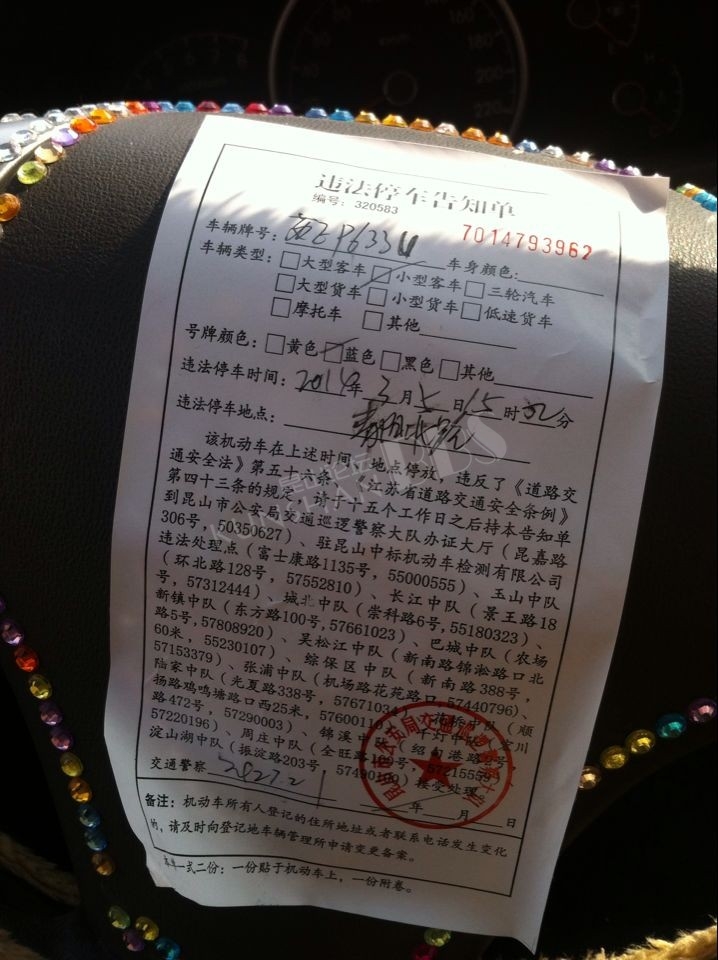 违法停车告知单
编号：320583
7014793962
车辆牌号： 车身颜色：
车辆类型：□大型客车 ☑小型客车 □三轮汽车
□大型货车 □小型货车 □低速货车
□摩托车 □其他
号牌颜色：□黄色 ☑蓝色 □黑色 □其他
违法停车时间：2014年3月5日15时 分
违法停车地点：
该机动车在上述时间、地点停放，违反了《道路交
通安全法》第五十六条、《江苏省道路交通安全条例》
第四十三条的规定，请于十五个工作日之后持本告知单
到昆山市公安局交通巡逻警察大队办证大厅（昆嘉路
306号，50350627）、驻昆山中标机动车检测有限公司
违法处理点（富士康路1135号，55000555）、玉山中队
（环北路128号，57552810）、长江中队（景王路18
号，57312444）、城北中队（崇科路6号,55180323）、
新镇中队（东方路100号,57661023）、巴城中队（农场
路5号,57808920）、吴淞江中队（新南路锦淞路口北
60米，55230107）、综保区中队（新南路388号，
57153379）、张浦中队（机场路花苑路口,57440796）、
陆家中队（光夏路338号，57671034）、花桥中队（顺
扬路鸡鸣塘路口西25米，57600110）、千灯中队（ 川
路472号，57290003）、锦溪中队（绍甸港路 号，
57220196）、周庄中队（全旺路109号，57215559）、
淀山湖中队（振淀路203号，57490100）接受处理。
交通警察 年 月 日
备注：机动车所有人登记的住所地址或者联系电话发生变化
的，请及时向登记地车辆管理所申请变更备案。
本单一式二份：一份贴于机动车上，一份附卷。